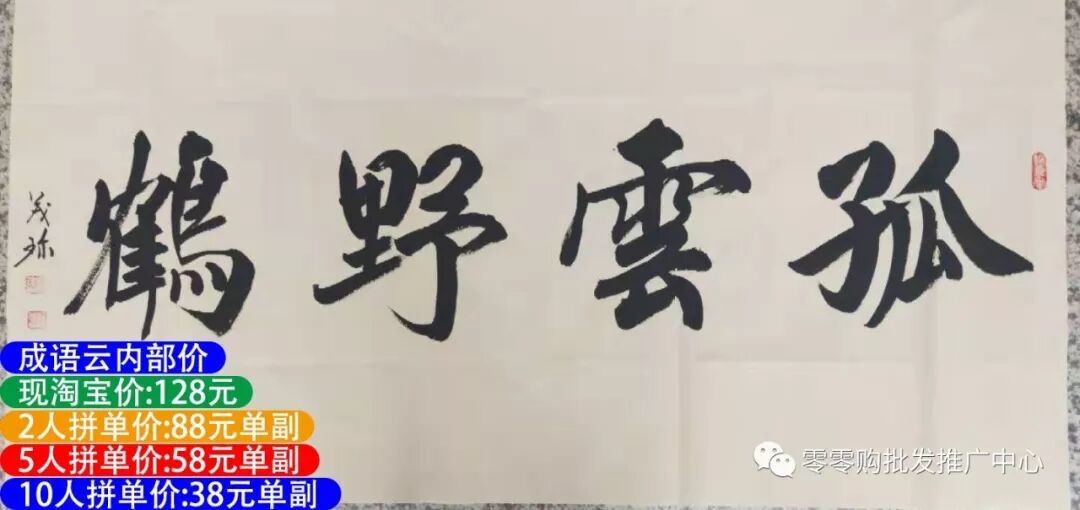 孤雲野鶴
成语云内部价
现淘宝价:128元
2人拼单价:88元单副
5人拼单价:58元单副
10人拼单价:38元单副
零零购批发推广中心